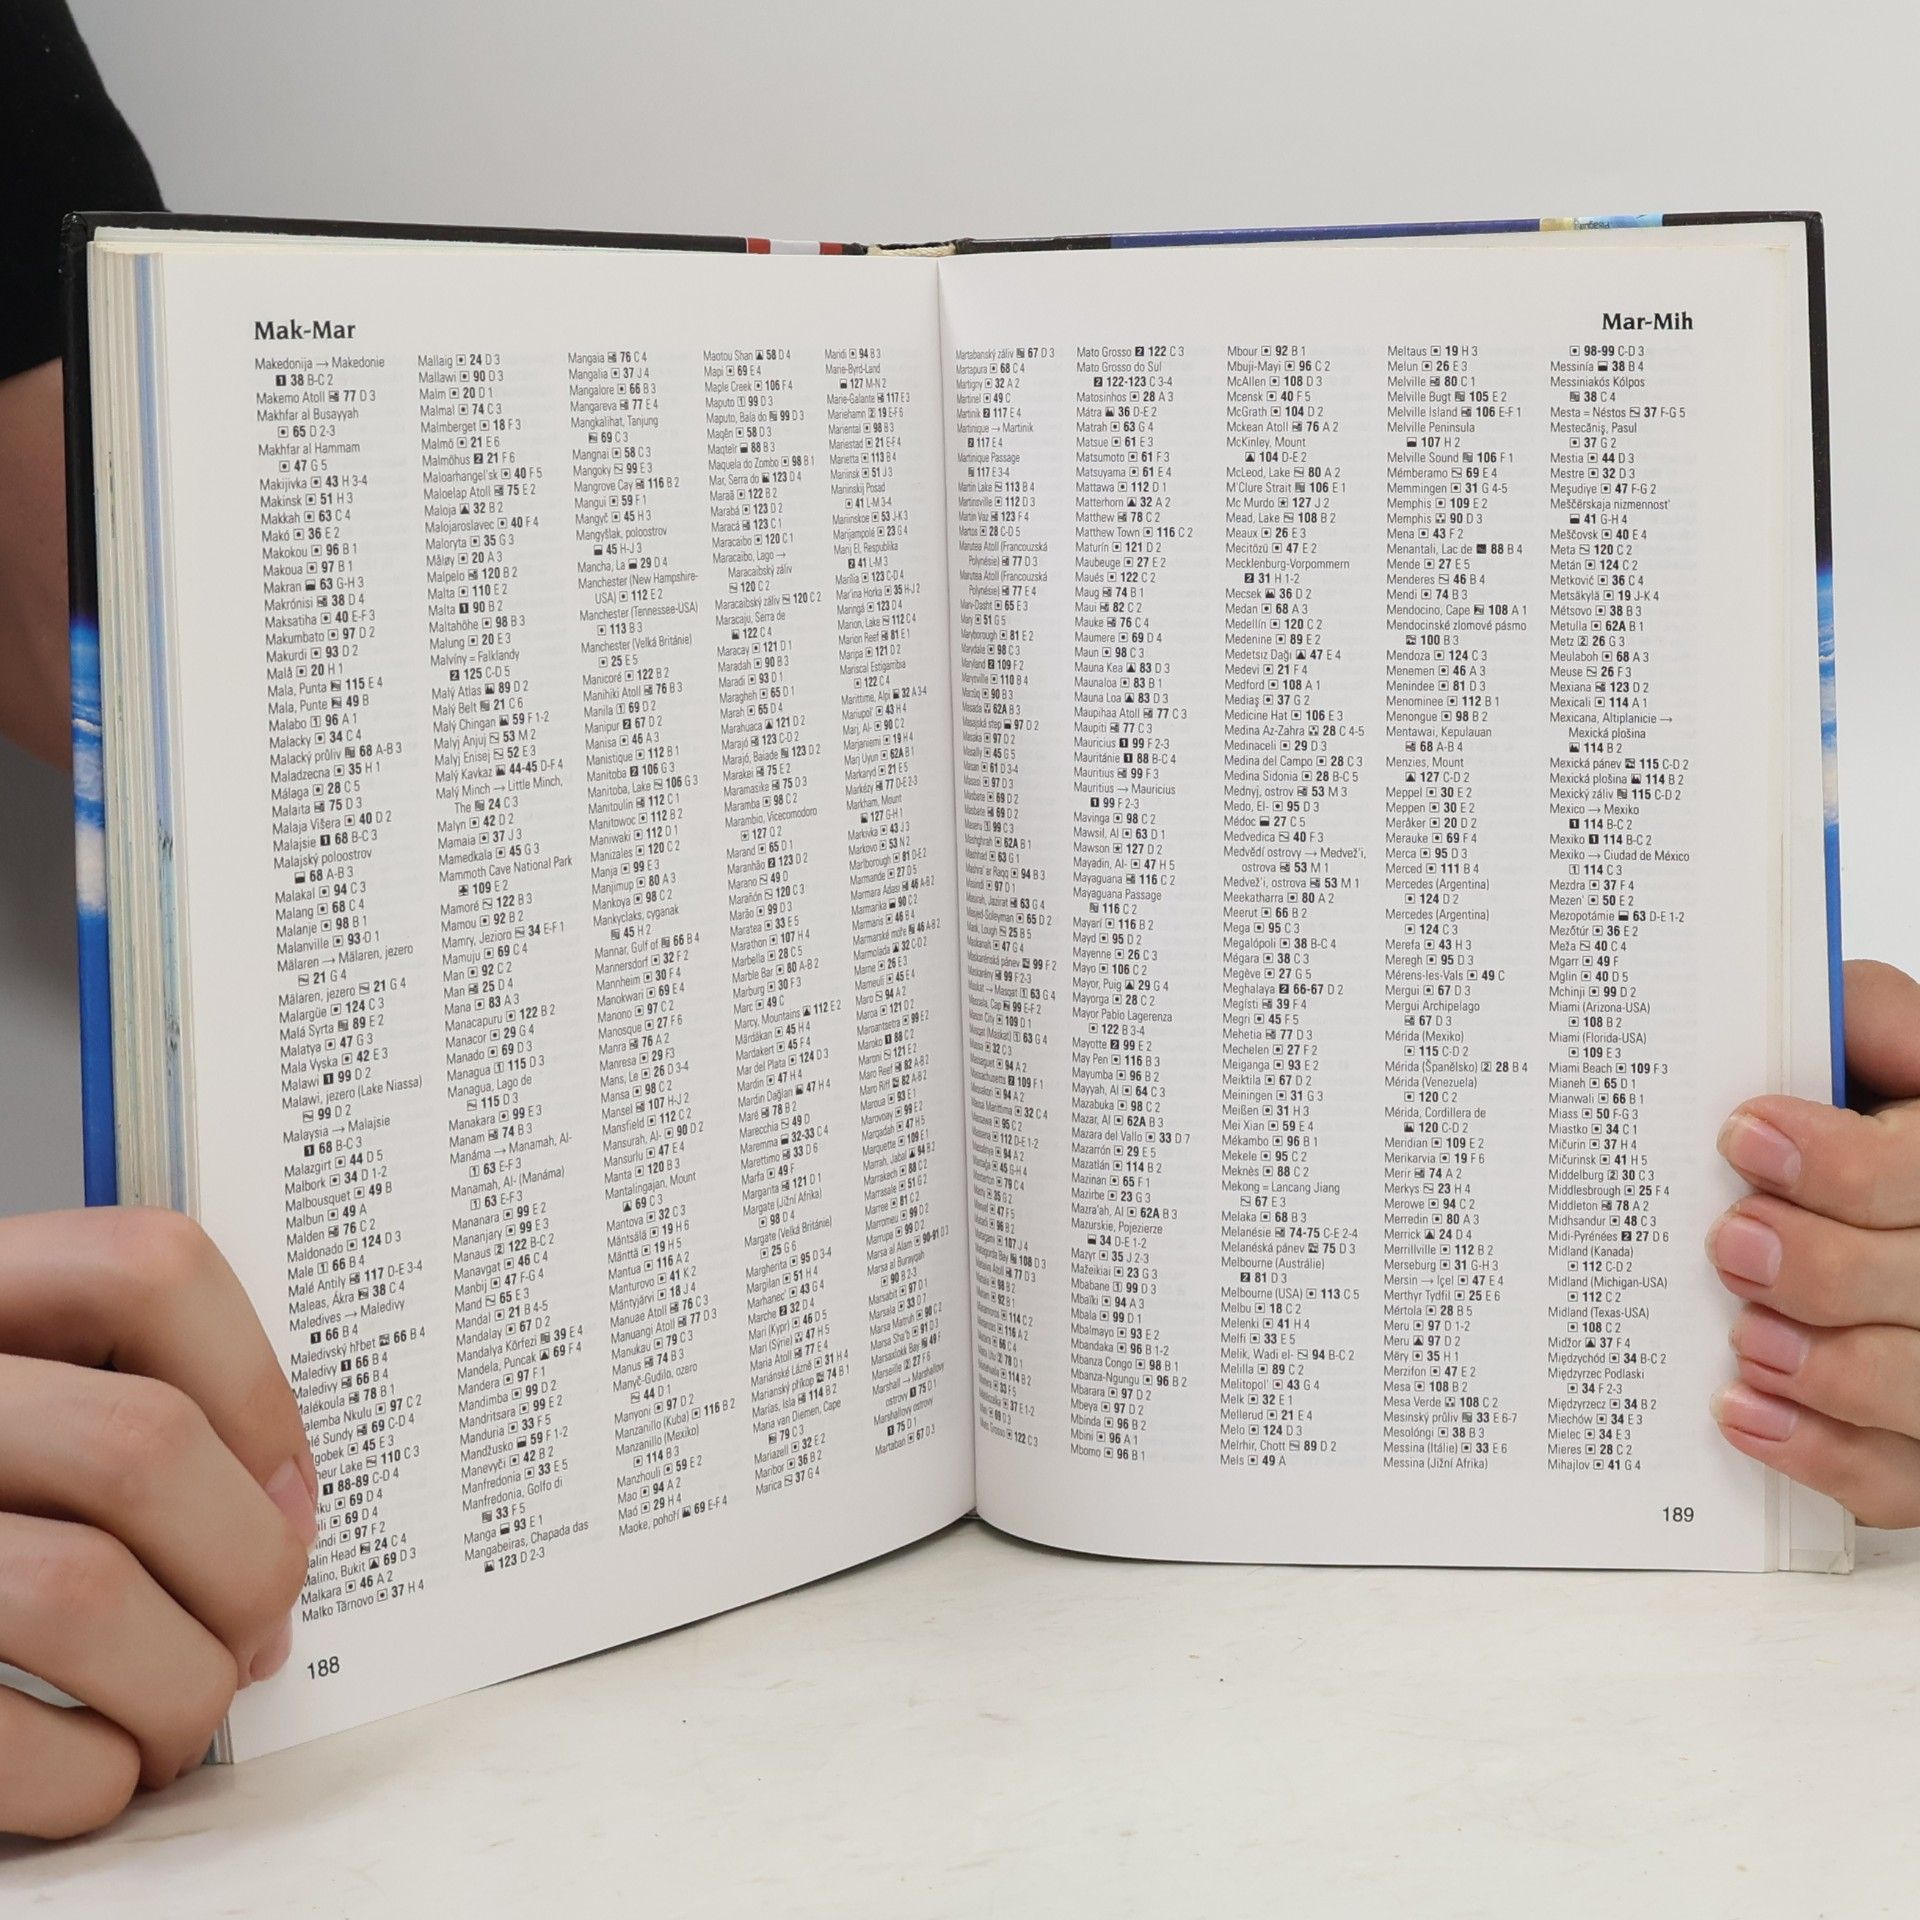 Mak-Mar
Makedonija → Makedonie
1 38 B-C 2
Makemo Atoll 77 D 3
Makhfar al Busayyah
65 D 2-3
Makhfar al Hammam
47 G 5
Makijivka 43 H 3-4
Makinsk 51 H 3
Makkah 63 C 4
Makó 36 E 2
Makokou 96 B 1
Makoua 97 B 1
Makran 63 G-H 3
Makrónisi 38 D 4
Maksatiha 40 E-F 3
Makumbato 97 D 2
Makurdi 93 D 2
Malå 20 H 1
Mala, Punta 115 E 4
Mala, Punte 49 B
Malabo 1 96 A 1
Malacky 34 C 4
Malacký průliv 68 A-B 3
Maladzecna 35 H 1
Málaga 28 C 5
Malaita 75 D 3
Malaja Višera 40 D 2
Malajsie 1 68 B-C 3
Malajský poloostrov
68 A-B 3
Malakal 94 C 3
Malang 68 C 4
Malanje 98 B 1
Malanville 93 D 1
Mälaren → Mälaren, jezero
21 G 4
Mälaren, jezero 21 G 4
Malargüe 124 C 3
Malá Syrta 89 E 2
Malatya 47 G 3
Mala Vyska 42 E 3
Malawi 1 99 D 2
Malawi, jezero (Lake Niassa)
99 D 2
Malaysia → Malajsie
1 68 B-C 3
Malazgirt 44 D 5
Malbork 34 D 1-2
Malbousquet 49 B
Malbun 49 A
Malden 76 C 2
Maldonado 124 D 3
Male 1 66 B 4
Malé Antily 117 D-E 3-4
Maleas, Ákra 38 C 4
Maledives → Maledivy
1 66 B 4
Maledivský hřbet 66 B 4
Maledivy 1 66 B 4
Maledivy 66 B 4
Malékoula 78 B 1
97 C 2
Sundy 69 C-D 4
45 E 3
Lake 110 C 3
1 88-89 C-D 4
69 D 4
69 D 4
97 F 2
Head 24 C 4
Malino, Bukit 69 D 3
Malkara 46 A 2
Malko Tărnovo 37 H 4
Mallaig 24 D 3
Mallawi 90 D 3
Malm 20 D 1
Malmal 74 C 3
Malmberget 18 F 3
Malmö 21 E 6
Malmöhus 2 21 F 6
Maloarhangel'sk 40 F 5
Maloelap Atoll 75 E 2
Maloja 32 B 2
Malojaroslavec 40 F 4
Maloryta 35 G 3
Måløy 20 A 3
Malpelo 120 B 2
Malta 110 E 2
Malta 1 90 B 2
Maltahöhe 98 B 3
Malung 20 E 3
Malvíny = Falklandy
2 125 C-D 5
Malý Atlas 89 D 2
Malý Belt 21 C 6
Malý Chingan 59 F 1-2
Malyj Anjuj 53 M 2
Malyj Enisej 52 E 3
Malý Kavkaz 44-45 D-F 4
Malý Minch → Little Minch,
The 24 C 3
Malyn 42 D 2
Mamaia 37 J 3
Mamedkala 45 G 3
Mammoth Cave National Park
109 E 2
Mamoré 122 B 3
Mamou 92 B 2
Mamry, Jezioro 34 E-F 1
Mamuju 69 C 4
Man 92 C 2
Man 25 D 4
Mana 83 A 3
Manacapuru 122 B 2
Manacor 29 G 4
Manado 69 D 3
Managua 1 115 D 3
Managua, Lago de
115 D 3
Manakara 99 E 3
Manam 74 B 3
Manáma → Manamah, Al-
1 63 E-F 3
Manamah, Al- (Manáma)
1 63 E-F 3
Mananara 99 E 2
Mananjary 99 E 3
Manaus 2 122 B-C 2
Manavgat 46 C 4
Manbij 47 F-G 4
Mand 65 E 3
Mandal 21 B 4-5
Mandalay 67 D 2
Mandalya Körfezi 39 E 4
Mandela, Puncak 69 F 4
Mandera 97 F 1
Mandimba 99 D 2
Mandritsara 99 E 2
Manduria 33 F 5
Mandžusko 59 F 1-2
Manevyči 42 B 2
Manfredonia 33 E 5
Manfredonia, Golfo di
33 F 5
Manga 93 E 1
Mangabeiras, Chapada das
123 D 2-3
Mangaia 76 C 4
Mangalia 37 J 4
Mangalore 66 B 3
Mangareva 77 E 4
Mangkalihat, Tanjung
69 C 3
Mangnai 58 C 3
Mangoky 99 E 3
Mangrove Cay 116 B 2
Mangui 59 F 1
Mangyč 45 H 3
Mangyšlak, poloostrov
45 H-J 3
Mancha, La 29 D 4
Manchester (New Hampshire-
USA) 112 E 2
Manchester (Tennessee-USA)
113 B 3
Manchester (Velká Británie)
25 E 5
Manicoré 122 B 2
Manihiki Atoll 76 B 3
Manila 1 69 D 2
Manipur 2 67 D 2
Manisa 46 A 3
Manistique 112 B 1
Manitoba 2 106 G 3
Manitoba, Lake 106 G 3
Manitoulin 112 C 1
Manitowoc 112 B 2
Maniwaki 112 D 1
Manizales 120 C 2
Manja 99 E 3
Manjimup 80 A 3
Mankoya 98 C 2
Mankyclaks, cyganak
45 H 2
Mannar, Gulf of 66 B 4
Mannersdorf 32 F 2
Mannheim 30 F 4
Manokwari 69 E 4
Manono 97 C 2
Manosque 27 F 6
Manra 76 A 2
Manresa 29 F3
Mans, Le 26 D 3-4
Mansa 98 C 2
Mansel 107 H-J 2
Mansfield 112 C 2
Mansurah, Al- 90 D 2
Mansurlu 47 E 4
Manta 120 B 3
Mantalingajan, Mount
69 C 3
Mantova 32 C 3
Mäntsälä 19 H 6
Mänttä 19 H 5
Mantua 116 A 2
Manturovo 41 K 2
Mäntyjärvi 18 J 4
Manuae Atoll 76 C 3
Manuangi Atoll 77 D 3
Manukau 79 C 3
Manus 74 B 3
Manyč-Gudilo, ozero
44 D 1
Manyoni 97 D 2
Manzanillo (Kuba) 116 B 2
Manzanillo (Mexiko)
114 B 3
Manzhouli 59 E 2
Mao 94 A 2
Maó 29 H 4
Maoke, pohoří 69 E-F 4
Maotou Shan 58 D 4
Mapi 69 E 4
Maple Creek 106 F 4
Maputo 1 99 D 3
Maputo, Baía do 99 D 3
Maqên 58 D 3
Maqteïr 88 B 3
Maquela do Zombo 98 B 1
Mar, Serra do 123 D 4
Maraã 122 B 2
Marabá 123 D 2
Maracá 123 C 1
Maracaibo 120 C 1
Maracaibo, Lago →
Maracaibský záliv
120 C 2
Maracaibský záliv 120 C 2
Maracaju, Serra de
122 C 4
Maracay 121 D 1
Maradah 90 B 3
Maradi 93 D 1
Maragheh 65 D 1
Marah 65 D 4
Marahuaca 121 D 2
Marajó 123 C-D 2
Marajó, Baiade 123 D 2
Marakei 75 E 2
Maramasike 75 D 3
Maramba 98 C 2
Marambio, Vicecomodoro
127 Q 2
Marand 65 D 1
Maranhão 2 123 D 2
Marano 49 D
Marañón 120 C 3
Marão 99 D 3
Maratea 33 E 5
Marathon 107 H 4
Marbella 28 C 5
Marble Bar 80 A-B 2
Marburg 30 F 3
Marc 49 C
Marcy, Mountains 112 E 2
Märdäkan 45 H 4
Mardakert 45 F 4
Mar del Plata 124 D 3
Mardin 47 H 4
Mardin Dağlan 47 H 4
Maré 78 B 2
Marecchia 49 D
Maremma 32-33 C 4
Marettimo 33 D 6
Marfa 49 F
Margarita 121 D 1
Margate (Jižní Afrika)
98 D 4
Margate (Velká Británie)
25 G 6
Margherita 95 D 3-4
Margilan 51 H 4
Marhanec' 43 G 4
Marche 2 32 D 4
Mari (Kypr) 46 D 5
Mari (Sýrie) 47 H 5
Maria Atoll 77 E 4
Mariánské Lázně 31 H 4
Marianský příkop 74 B 1
Marías, Isla 114 B 2
Maria van Diemen, Cape
79 C 3
Mariazell 32 E 2
Maribor 36 B 2
Marica 37 G 4
Maridi 94 B 3
Marie-Byrd-Land
127 M-N 2
Marie-Galante 117 E 3
Mariehamn 2 19 E-F 6
Mariental 98 B 3
Mariestad 21 E-F 4
Marietta 113 B 4
Mariinsk 51 J 3
Mariinskij Posad
41 L-M 3-4
Mariinskoe 53 J-K 3
Marijampolė 23 G 4
Marij El, Respublika
2 41 L-M 3
Marília 123 C-D 4
Mar'ina Horka 35 H-J 2
Maringá 123 D 4
Marion, Lake 112 C 4
Marion Reef 81 E 1
Maripa 121 D 2
Mariscal Estigarribia
122 C 4
Marittime, Alpi 32 A 3-4
Mariupol' 43 H 4
Marj, Al- 90 C 2
Marjaniemi 19 H 4
Marj Uyun 62A B 1
Markaryd 21 E 5
Markézy 77 D-E 2-3
Markham, Mount
127 G-H 1
Markivka 43 J 3
Markovo 53 N 2
Marlborough 81 D-E 2
Marmande 27 D 5
Marmara Adasi 46 A-B 2
Marmarika 90 C 2
Marmaris 46 B 4
Marmarské moře 46 A-B 2
Marmolada 32 C-D 2
Marne 26 E 3
Marneuli 45 E 4
Maro 94 A 2
Maroa 121 D 2
Maroantsetra 99 E 2
Maroko 1 88 C 2
Maroni 121 E 2
Maro Reef 82 A-B 2
Maro Riff 82 A-B 2
Maroua 93 E 1
Marovoay 99 E 2
Marqadah 47 H 5
Marquette 109 E 1
Marrah, Jabal 94 B 2
Marrakech 88 C 2
Marrasale 51 G 2
Marree 81 C 2
Marromeu 99 D 2
Marrupa 99 D 2
Marsa al Alam 90-91 D 3
Marsa al Burayqah
90 B 2-3
Marsabit 97 D 1
Marsala 33 D 7
Marsa Matruh 90 C 2
Marsa Sha'b 91 D 3
Marsaxlokk Bay 49 F
Marseille 2 27 F 6
Marshall → Marshallovy
ostrovy 1 75 D 1
Marshallovy ostrovy
1 75 D 1
Martaban 67 D 3
188
Mar-Mih
Martabanský záliv 67 D 3
Martapura 68 C 4
Martigny 32 A 2
Martinel 49 C
Martinik 2 117 E 4
Martinique → Martinik
2 117 E 4
Martinique Passage
117 E 3-4
Martin Lake 113 B 4
Martinsville 112 D 3
Martin Vaz 123 F 4
Martos 28 C-D 5
Marutea Atoll (Francouzská
Polynésie) 77 D 3
Marutea Atoll (Francouzská
Polynésie) 77 E 4
Marv-Dasht 65 E 3
Mary 51 G 5
Maryborough 81 E 2
Marydale 98 C 3
Maryland 2 109 F 2
Marysville 110 B 4
Marzūq 90 B 3
Masada 62A B 3
Masajská step 97 D 2
Masaka 97 D 2
Masally 45 G 5
Masan 61 D 3-4
Masasi 97 D 3
Masbate 69 D 2
Masbate 69 D 2
Maseru 1 99 C 3
Mashghrah 62A B 1
Mashhad 63 G 1
Mashra' ar Raqq 94 B 3
Masindi 97 D 1
Masirah, Jazirat 63 G 4
Masjed-Soleyman 65 D 2
Mask, Lough 25 B 5
Maskanah 47 G 4
Maskarénská pánev 99 F 2
Maskarény 99 F 2-3
Maskat → Masqat 1 63 G 4
Masoala, Cap 99 E-F 2
Mason City 109 D 1
Masqat (Maskat) 1 63 G 4
Massa 32 C 3
Massaguet 94 A 2
Massachusetts 2 109 F 1
Massakori 94 A 2
Massa Marittima 32 C 4
Massawa 95 C 2
Massena 112 D-E 1-2
Massenya 94 A 2
Masterton 79 C 4
Matagorda Bay 108 D 3
Mataiva Atoll 77 D 3
Matam 92 B 1
Matamoros 114 C 2
Matanzas 116 A 2
Matara 66 C 4
Mata Utu 2 78 D 1
Matehuala 114 B 2
Matera 33 F 5
Mato Grosso 122 C 3
Mato Grosso 2 122 C 3
Mato Grosso do Sul
2 122-123 C 3-4
Matosinhos 28 A 3
Mátra 36 D-E 2
Matrah 63 G 4
Matsue 61 E 3
Matsumoto 61 F 3
Matsuyama 61 E 4
Mattawa 112 D 1
Matterhorn 32 A 2
Matthew 78 C 2
Matthew Town 116 C 2
Maturín 121 D 2
Maubeuge 27 E 2
Maués 122 C 2
Maug 74 B 1
Maui 82 C 2
Mauke 76 C 4
Maumere 69 D 4
Maun 98 C 3
Mauna Kea 83 D 3
Maunaloa 83 B 1
Mauna Loa 83 D 3
Maupihaa Atoll 77 C 3
Maupiti 77 C 3
Mauricius 1 99 F 2-3
Mauritánie 1 88 B-C 4
Mauritius 99 F 3
Mauritius → Mauricius
1 99 F 2-3
Mavinga 98 C 2
Mawsil, Al 63 D 1
Mawson 127 D 2
Mayadin, Al- 47 H 5
Mayaguana 116 C 2
Mayaguana Passage
116 C 2
Mayarí 116 B 2
Mayd 95 D 2
Mayenne 26 C 3
Mayo 106 C 2
Mayor, Puig 29 G 4
Mayorga 28 C 2
Mayor Pablo Lagerenza
122 B 3-4
Mayotte 2 99 E 2
May Pen 116 B 3
Mayumba 96 B 2
Mayyah, Al 64 C 3
Mazabuka 98 C 2
Mazar, Al 62A B 3
Mazara del Vallo 33 D 7
Mazarrón 29 E 5
Mazatlán 114 B 2
Mazinan 65 F 1
Mazirbe 23 G 3
Mazra'ah, Al 62A B 3
Mazurskie, Pojezierze
34 D-E 1-2
Mazyr 35 J 2-3
Mažeikiai 23 G 3
Mbabane 1 99 D 3
Mbaïki 94 A 3
Mbala 99 D 1
Mbalmayo 93 E 2
Mbandaka 96 B 1-2
Mbanza Congo 98 B 1
Mbanza-Ngungu 96 B 2
Mbarara 97 D 2
Mbeya 97 D 2
Mbinda 96 B 2
Mbini 96 A 1
Mbomo 96 B 1
Mbour 92 B 1
Mbuji-Mayi 96 C 2
McAllen 108 D 3
Mcensk 40 F 5
McGrath 104 D 2
Mckean Atoll 76 A 2
McKinley, Mount
104 D-E 2
McLeod, Lake 80 A 2
M'Clure Strait 106 E 1
Mc Murdo 127 J 2
Mead, Lake 108 B 2
Meaux 26 E 3
Mecitözü 47 E 2
Mecklenburg-Vorpommern
2 31 H 1-2
Mecsek 36 D 2
Medan 68 A 3
Medellín 120 C 2
Medenine 89 E 2
Medetsız Dağı 47 E 4
Medevi 21 F 4
Medford 108 A 1
Mediaş 37 G 2
Medicine Hat 106 E 3
Medina Az-Zahra 28 C 4-5
Medinaceli 29 D 3
Medina del Campo 28 C 3
Medina Sidonia 28 B-C 5
Mednyj, ostrov 53 M 3
Medo, El- 95 D 3
Médoc 27 C 5
Medvedica 40 F 3
Medvědí ostrovy → Medvež'i,
ostrova 53 M 1
Medvež'i, ostrova 53 M 1
Meekatharra 80 A 2
Meerut 66 B 2
Mega 95 C 3
Megalópoli 38 B-C 4
Mégara 38 C 3
Megève 27 G 5
Meghalaya 2 66-67 D 2
Megísti 39 F 4
Megri 45 F 5
Mehetia 77 D 3
Mechelen 27 F 2
Meiganga 93 E 2
Meiktila 67 D 2
Meiningen 31 G 3
Meißen 31 H 3
Mei Xian 59 E 4
Mékambo 96 B 1
Mekele 95 C 2
Meknès 88 C 2
Mekong = Lancang Jiang
67 E 3
Melaka 68 B 3
Melanésie 74-75 C-E 2-4
Melanéská pánev 75 D 3
Melbourne (Austrálie)
2 81 D 3
Melbourne (USA) 113 C 5
Melbu 18 C 2
Melenki 41 H 4
Melfi 33 E 5
Melik, Wadi el- 94 B-C 2
Melilla 89 C 2
Melitopol' 43 G 4
Melk 32 E 1
Mellerud 21 E 4
Melo 124 D 3
Melrhir, Chott 89 D 2
Mels 49 A
Meltaus 19 H 3
Melun 26 E 3
Melville 80 C 1
Melville Bugt 105 E 2
Melville Island 106 E-F 1
Melville Peninsula
107 H 2
Melville Sound 106 F 1
Mémberamo 69 E 4
Memmingen 31 G 4-5
Memphis 109 E 2
Memphis 90 D 3
Mena 43 F 2
Menantali, Lac de 88 B 4
Mende 27 E 5
Menderes 46 B 4
Mendi 74 B 3
Mendocino, Cape 108 A 1
Mendocinské zlomové pásmo
100 B 3
Mendoza 124 C 3
Menemen 46 A 3
Menindee 81 D 3
Menominee 112 B 1
Menongue 98 B 2
Mentawai, Kepulauan
68 A-B 4
Menzies, Mount
127 C-D 2
Meppel 30 E 2
Meppen 30 E 2
Meråker 20 D 2
Merauke 69 F 4
Merca 95 D 3
Merced 111 B 4
Mercedes (Argentina)
124 D 2
Mercedes (Argentina)
124 C 3
Merefa 43 H 3
Meregh 95 D 3
Mérens-les-Vals 49 C
Mergui 67 D 3
Mergui Archipelago
67 D 3
Mérida (Mexiko)
115 C-D 2
Mérida (Španělsko) 2 28 B 4
Mérida (Venezuela)
120 C 2
Mérida, Cordillera de
120 C-D 2
Meridian 109 E 2
Merikarvia 19 F 6
Merir 74 A 2
Merkys 23 H 4
Merowe 94 C 2
Merredin 80 A 3
Merrick 24 D 4
Merrillville 112 B 2
Merseburg 31 G-H 3
Mersin → Içel 47 E 4
Merthyr Tydfil 25 E 6
Mértola 28 B 5
Meru 97 D 1-2
Meru 97 D 2
Mēry 35 H 1
Merzifon 47 E 2
Mesa 108 B 2
Mesa Verde 108 C 2
Mesinský průliv 33 E 6-7
Mesolóngi 38 B 3
Messina (Itálie) 33 E 6
Messina (Jižní Afrika)
98-99 C-D 3
Messinía 38 B 4
Messiniakós Kólpos
38 C 4
Mesta = Néstos 37 F-G 5
Mestecăniş, Pasul
37 G 2
Mestia 44 D 3
Mestre 32 D 3
Meşudiye 47 F-G 2
Meščërskaja nizmennost'
41 G-H 4
Meščovsk 40 E 4
Meta 120 C 2
Metán 124 C 2
Metković 36 C 4
Metsäkylä 19 J-K 4
Métsovo 38 B 3
Metulla 62A B 1
Metz 2 26 G 3
Meulaboh 68 A 3
Meuse 26 F 3
Mexiana 123 D 2
Mexicali 114 A 1
Mexicana, Altiplanicie →
Mexická plošina
114 B 2
Mexická pánev 115 C-D 2
Mexická plošina 114 B 2
Mexický záliv 115 C-D 2
Mexico → Mexiko
1 114 B-C 2
Mexiko 1 114 B-C 2
Mexiko → Ciudad de México
1 114 C 3
Mezdra 37 F 4
Mezen' 50 E 2
Mezopotámie 63 D-E 1-2
Mezőtúr 36 E 2
Meža 40 C 4
Mgarr 49 F
Mglin 40 D 5
Mchinji 99 D 2
Miami (Arizona-USA)
108 B 2
Miami (Florida-USA)
109 E 3
Miami Beach 109 F 3
Mianeh 65 D 1
Mianwali 66 B 1
Miass 50 F-G 3
Miastko 34 C 1
Mičurin 37 H 4
Mičurinsk 41 H 5
Middelburg 2 30 C 3
Middlesbrough 25 F 4
Middleton 78 A 2
Midhsandur 48 C 3
Midi-Pyrénées 2 27 D 6
Midland (Kanada)
112 C-D 2
Midland (Michigan-USA)
112 C 2
Midland (Texas-USA)
108 C 2
Midžor 37 F 4
Międzychód 34 B-C 2
Międzyrzec Podlaski
34 F 2-3
Międzyrzecz 34 B 2
Miechów 34 E 3
Mielec 34 E 3
Mieres 28 C 2
Mihajlov 41 G 4
189